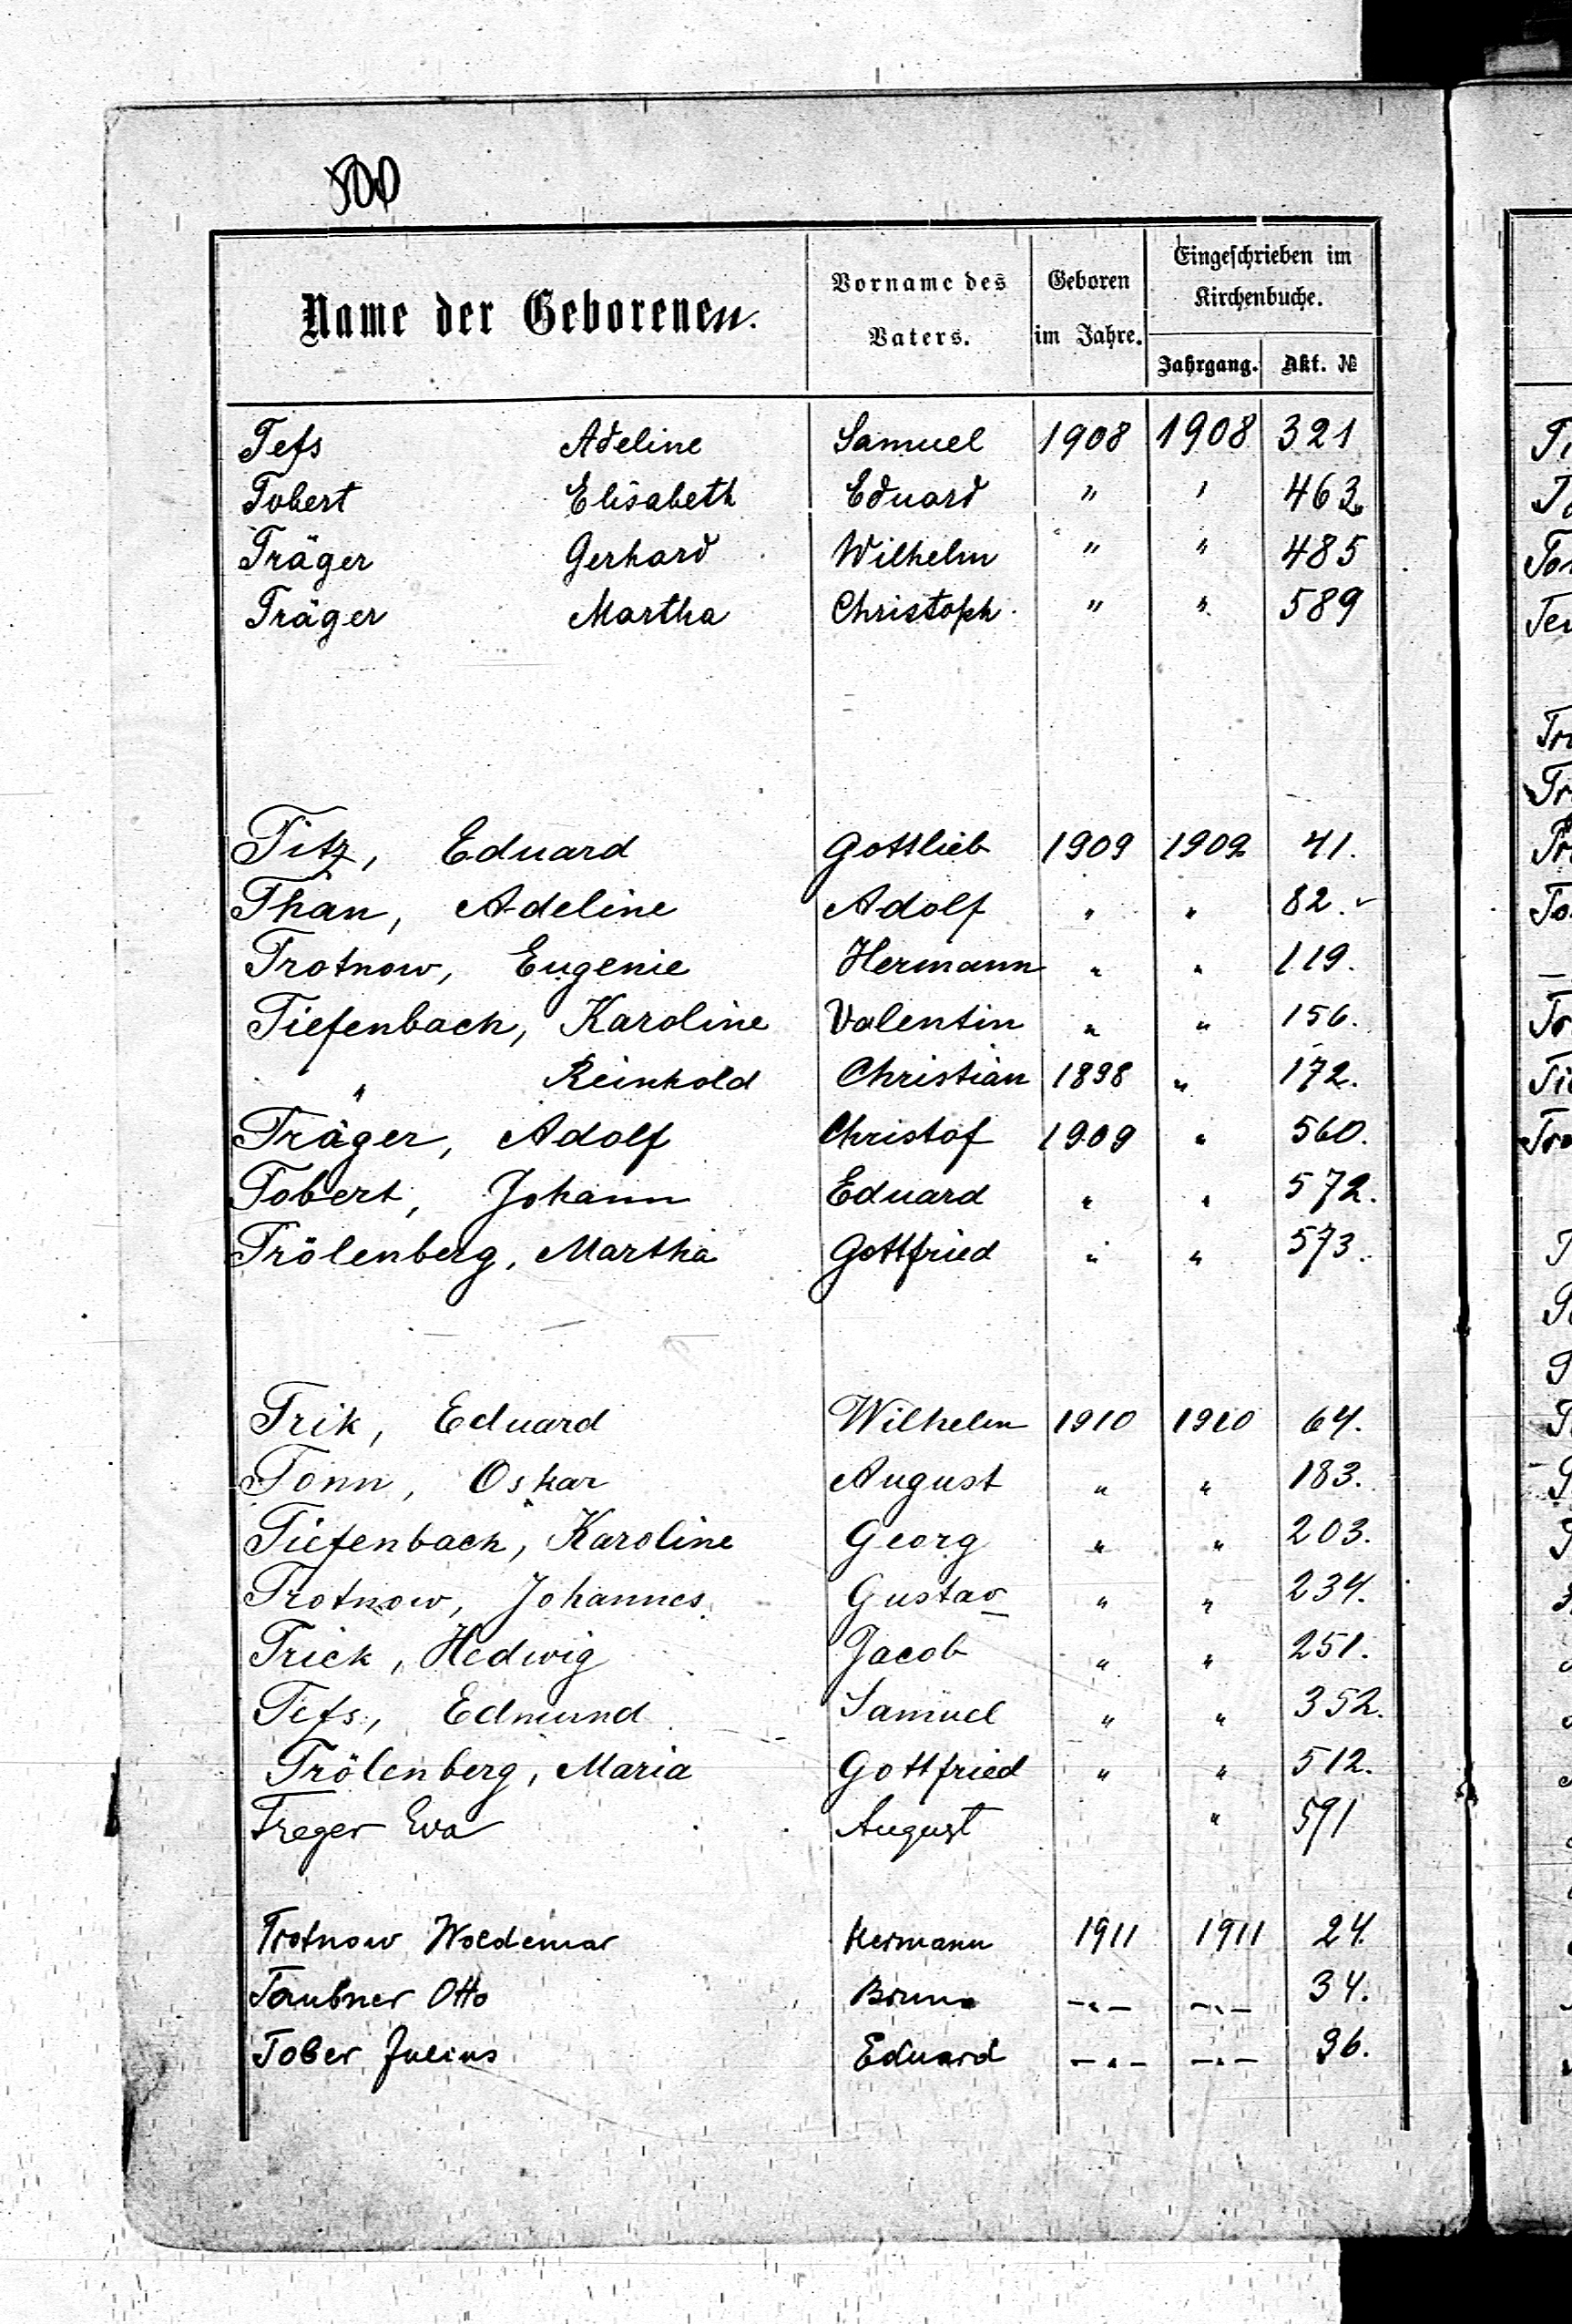 500
Name der Geborenen. Vorname des Vaters. Geboren im Jahre. Eingeschrieben im Kirchenbuche.
Jahrgang. Akt. №
Tefs Adeline Samuel 1908 1908 321
Tobert Elisabeth Eduard " " 463.
Träger Gerhard Wilhelm " " 485
Träger Martha Christoph " " 589
Titz, Eduard Gottlieb 1909 1909 41.
Than, Adeline Adolf " " 82.
Trotnow, Eugenie Hermann " " 119.
Tiefenbach, Karoline Valentin " " 156.
" Reinhold Christian 1898 " 172.
Träger, Adolf Christof 1909 " 560.
Tobert, Johann Eduard " " 572.
Trölenberg, Martha Gottfried " " 573.
Trik, Eduard Wilhelm 1910 1910 64.
Tonn, Oskar August " " 183.
Tiefenbach, Karoline Georg " " 203.
Trotnow, Johannes Gustav " " 234.
Trick, Hedwig Jacob " " 251.
Tefs, Edmund Samuel " " 352.
Trölenberg, Maria Gottfried " " 512.
Treger Eva August " 591
Trotnow Woldemar Hermann 1911 1911 24.
Taubner Otto Bruno -"- -"- 34.
Tober Julius Eduard -"- -"- 36.